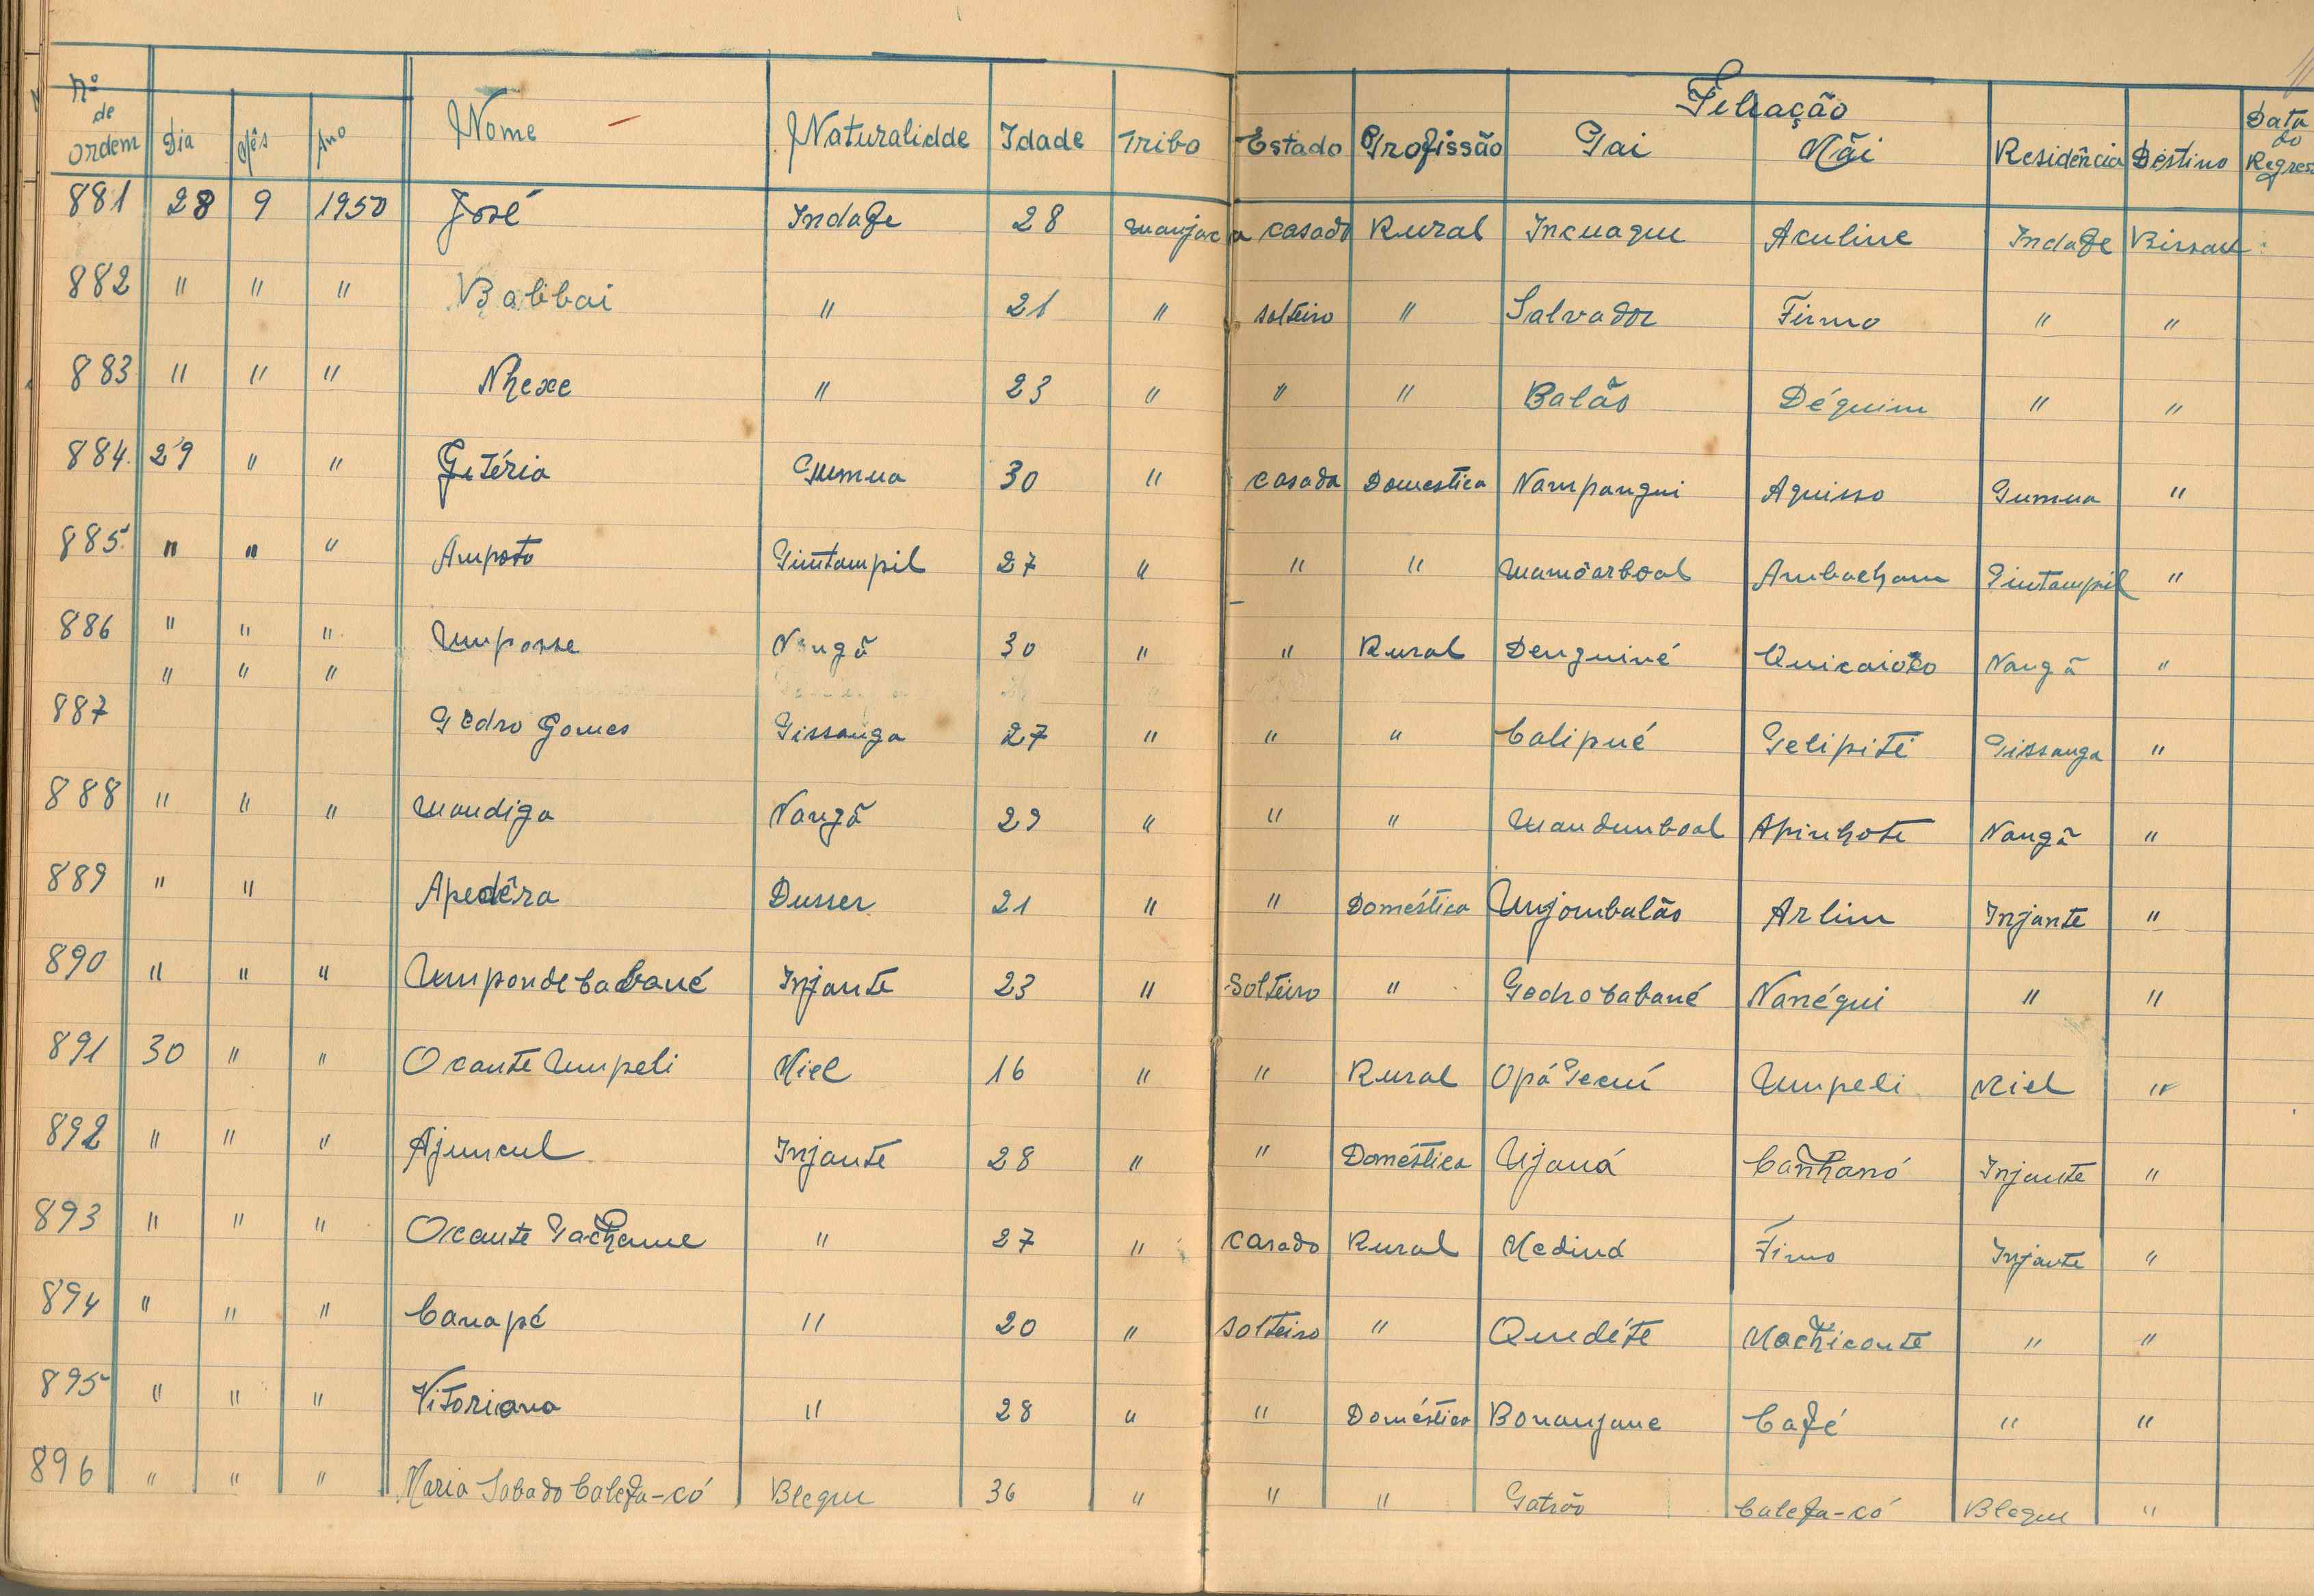 Filiação
Nº de ordem Dia Mês Ano Nome Naturalidde Idade Tribo Estado Profissão Pai Mãi Residência Destino Data do Regres
881 28 9 1950 José Indafe 28 manjaca casado Rural Incuaque Aculine Indafe Bissau
882 " " " Balibai " 21 " solteiro " Salvador Firmo " "
883 " " " Nhexe " 23 " " " Balãs Déquim " "
884 29 " " Petéria Pumua 30 " casada Domestica Nampangui Aquisso Pumua "
885 " " " Ampoto Pintampil 27 " " " Mamõarboal Ambacham Pintampil "
886 " " " Umposse Nangã 30 " " Rural Denguiné Quicaioto Nangã "
" " "
887 Pedro Gomes Pissanga 27 " " " Calipué Pelipiti Pissanga "
888 " " " Mandiga Nangã 29 " " " Mandumboal Apinhote Nangã "
889 " " Apedêra Dusser 21 " " Doméstica Unjombalãs Arlim Injante "
890 " " " Umponde Cabané Injante 23 " Solteiro " Pedro Cabané Nanégui " "
891 30 " " Ocante Umpeli Miel 16 " " Rural Opá Pecuí Umpeli Miel "
892 " " " Ajuncul Injante 28 " " Doméstica Ujaná Canhanó Injante "
893 " " " Ocante Pachame " 27 " casado Rural Mediná Firmo Injante "
894 " " " Canapé " 20 " solteiro " Quedéte Machicante " "
895 " " " Vitoriana " 28 " " Doméstica Bonanjane Café " "
896 " " " Maria Sabado Calefa-có Blequu 36 " " " Patrão Calefa-có Blequu "